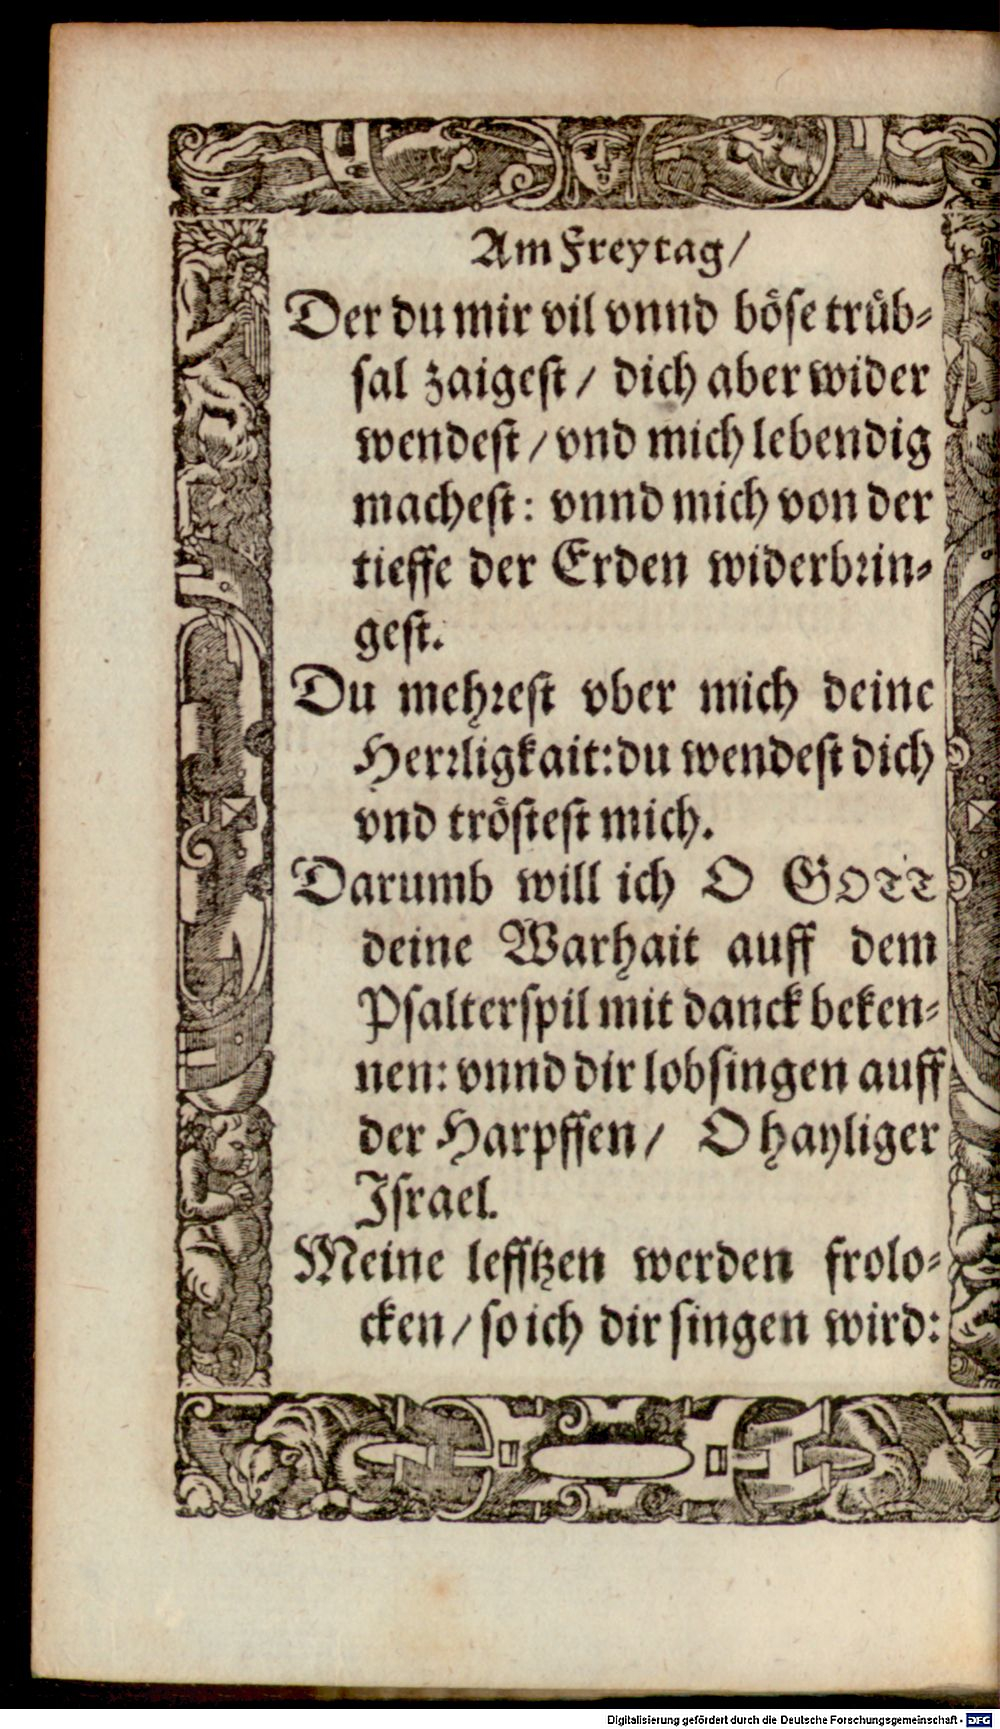 Am Freytag/
Der du mir vil vnnd böse trüb⸗
sal zaigest/ dich aber wider
wendest/ vnd mich lebendig
machest: vnnd mich von der
tieffe der Erden widerbrin⸗
gest.
Du mehrest vber mich deine
Herrligkait: du wendest dich
vnd tröstest mich.
Darumb will ich O GOTT
deine Warhait auff dem
Psalterspil mit danck beken⸗
nen: vnnd dir lobsingen auff
der Harpffen/ O hayliger
Israel.
Meine lefftzen werden frolo⸗
cken/ so ich dir singen wird:
Digitalisierung gefördert durch die Deutsche Forschungsgemeinschaft - DFG